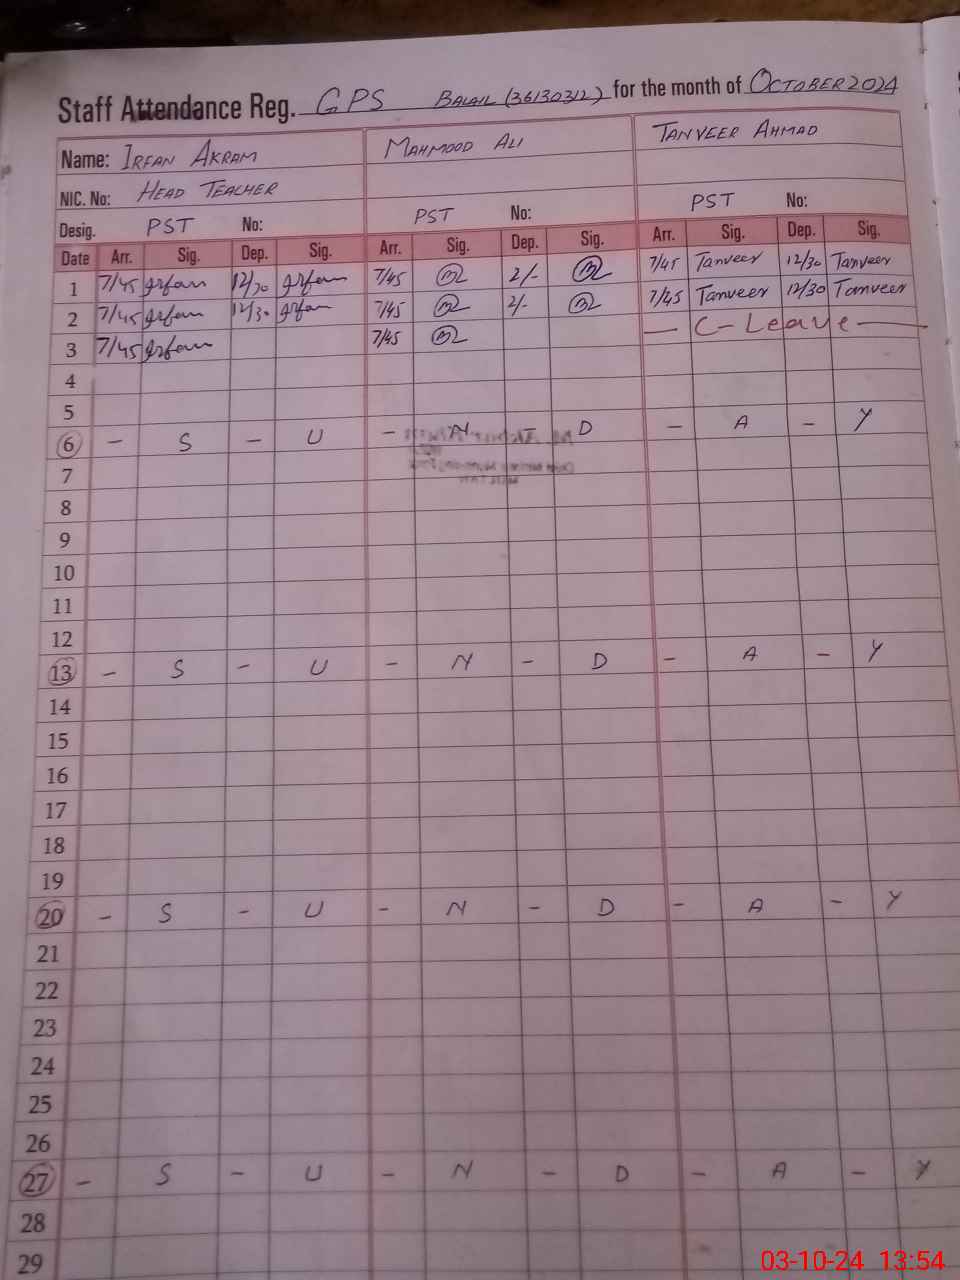 Staff Attendance Reg. GPS BALAIL (36130312) for the month of OCTOBER 2024
Name: IRFAN AKRAM MAHMOOD ALI TANVEER AHMAD
NIC. No: HEAD TEACHER
Desig. PST No: PST No: PST No:
Date Arr. Sig. Dep. Sig. Arr. Sig. Dep. Sig. Arr. Sig. Dep. Sig.
1 7/45 Irfan 12/30 Irfan 7/45 2/- 7/45 Tanveer 12/30 Tanveer
2 7/45 Irfan 12/30 Irfan 7/45 2/- 7/45 Tanveer 12/30 Tanveer
3 7/45 Irfan 7/45 — C-Leave —
4
5
6 - S - U - N - D - A - Y
7
8
9
10
11
12
13 - S - U - N - D - A - Y
14
15
16
17
18
19
20 - S - U - N - D - A - Y
21
22
23
24
25
26
27 - S - U - N - D - A - Y
28
29
03-10-24 13:54